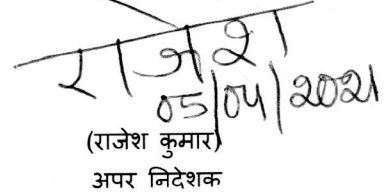 राजेश
05/04/2021
(राजेश कुमार)
अपर निदेशक